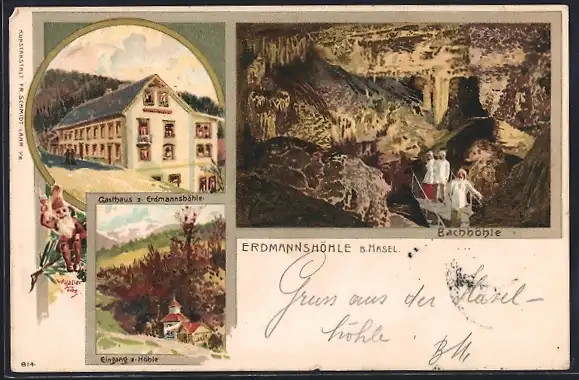 KUNSTANSTALT FR. SCHMIDT LAHR I/B.
Gasthaus z. Erdmannshöhle.
Bachhöhle
ERDMANNSHÖHLE B. HASEL.
Gruss aus der Hasel-
höhle.
Eingang z. Höhle
814